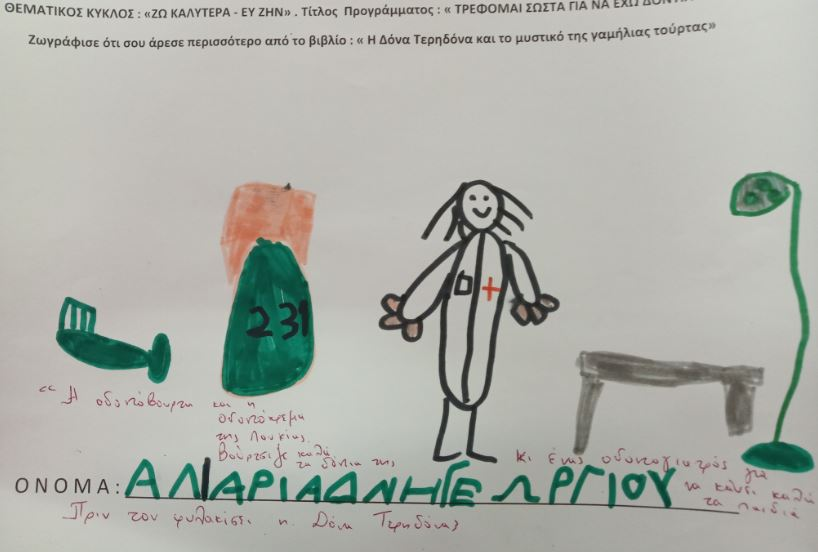 ΘΕΜΑΤΙΚΟΣ ΚΥΚΛΟΣ : «ΖΩ ΚΑΛΥΤΕΡΑ - ΕΥ ΖΗΝ» . Τίτλος Προγράμματος : « ΤΡΕΦΟΜΑΙ ΣΩΣΤΑ ΓΙΑ ΝΑ ΕΧΩ
Ζωγράφισε ότι σου άρεσε περισσότερο από το βιβλίο : « Η Δόνα Τερηδόνα και το μυστικό της γαμήλιας τούρτας»
231
“ Η οδοντόβουρτσα και η
οδοντόκρεμα
της Λουκίας.
Βούρτσιζε καλά
τα δόντια της
κι ένας οδοντογιατρός για
να κάνει καλά
τα παιδιά
ΟΝΟΜΑ: ΑΡΙΑΔΝΗ ΓΕΩΡΓΙΟΥ
Πριν τον φυλακίσει η Δόνα Τερηδόνα